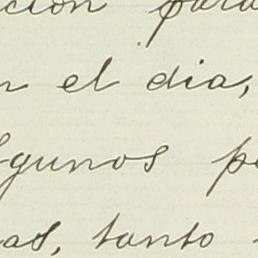 ción para
n el dia,
lgunos p
as, tanto